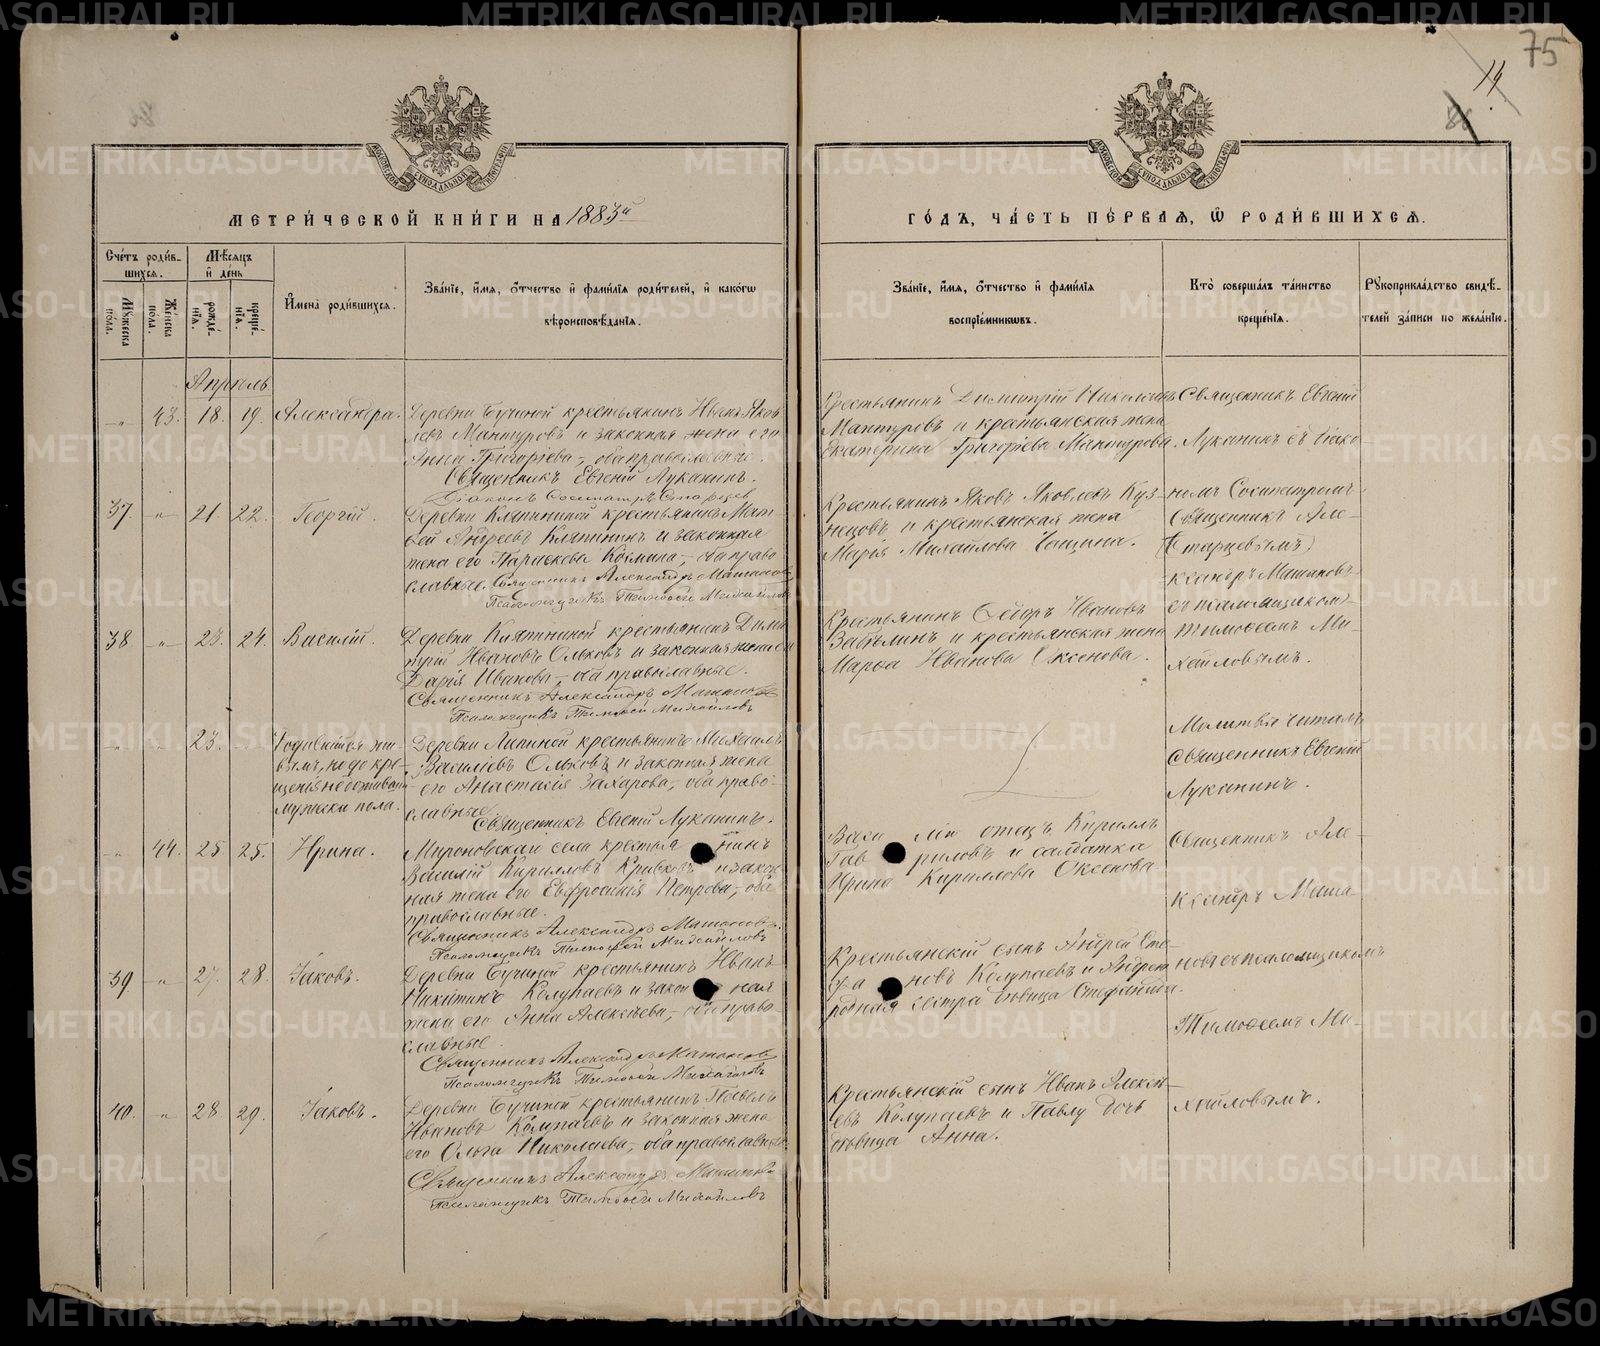 75
14
МЕТРИЧЕСКОЙ КНИГИ НА 1883й
ГОДЪ, ЧАСТЬ ПЕРВАЯ, Ѡ РОДИВШИХСЯ.
Счетъ родившихся.
Мужеска пола.
Женска пола.
Мѣсяцъ и день
рожденія.
крещенія.
Имена родившихся.
Званіе, имя, отчество и фамилія родителей, и какогѡ вѣроисповѣданія.
Званіе, имя, отчество и фамилія воспріемниковъ.
Кто совершалъ таинство крещенія.
Рукоприкладство свидѣтелей записи по желанію.
Апрѣль.
„ 43. 18. 19. Александра.
Деревни Бучиной крестьянинъ Иванъ Яков
левъ Мантуровъ и законная жена его
Анна Григорьева, оба православные.
Священникъ Евгеній Луканинъ.
Діаконъ Сосипатръ Старцевъ
Крестьянинъ Димитрій Николаевъ
Мантуровъ и крестьянская жена
Екатерина Григорьева Мантурова
Священникъ Евгеній
Луканинъ съ діако
номъ Сосипатромъ
(Старцевымъ)
37. „ 21. 22. Георгій.
Деревни Кляпининой крестьянинъ Мат-
вей Андреевъ Кляпининъ и законная
жена его Параскева Козмина, оба право
славные. Священникъ Александръ
Псаломщикъ Тимоѳей Михайловъ
Крестьянинъ Яковъ Яковлевъ Куз-
нецовъ и крестьянская жена
Марія Михайлова
Священникъ Але-
ксандръ
съ псаломщикомъ
Тимоѳеемъ Ми-
хайловымъ.
38 „ 23. 24. Василій.
Деревни Кляпининой крестьянинъ Дими
трій Ивановъ Ольковъ и законная жена его
Дарія Иванова, оба православные.
Священникъ Александръ
Псаломщикъ Тимоѳей Михайловъ
Крестьянинъ Ѳедоръ Ивановъ
и крестьянская жена
Марѳа Иванова Оксенова.
„ „ 23. Родившійся жи-
вымъ, но до кре-
щенія не дожившій
мужска пола.
Деревни Липиной крестьянинъ Михаилъ
Василіевъ Ольковъ и законная жена
его Анастасія Захарова, оба право-
славные.
Священникъ Евгеній Луканинъ.
Молитвы читалъ
Священникъ Евгеній
Луканинъ.
„ 44. 25 25. Ирина.
Мироновскаго села крестья нинъ
Василій Кирилловъ и закон
ная жена его Евфросинія Петрова, оба
православные.
Священникъ Александръ
Псаломщикъ Тимоѳей Михайловъ
Васи лія отецъ Кириллъ
Гав риловъ и солдатка
Ирина Кириллова Оксенова.
Священникъ Але-
ксандръ
съ псаломщикомъ
Тимоѳеемъ Ми-
хайловымъ.
39 „ 27. 28. Іаковъ.
Деревни Бучиной крестьянинъ Иванъ
Никитинъ Колупаевъ и закон ная
жена его Анна Алексѣева, оба право-
славные.
Священникъ Александръ
Псаломщикъ Тимоѳей Михайловъ
Крестьянскій сынъ Андрей Сте-
фа новъ Колупаевъ и Андрею
родная сестра дѣвица Стефанида.
40. „ 28. 29. Іаковъ.
Деревни Бучиной крестьянинъ Павелъ
Ивановъ Колупаевъ и законная жена
его Ольга Николаева, оба православные
Священникъ Александръ
Псаломщикъ Тимоѳей Михайловъ
Крестьянскій сынъ Иванъ Алексѣ-
евъ Колупаевъ и Павлу дочь
дѣвица Анна.
METRIKI.GASO-URAL.RU